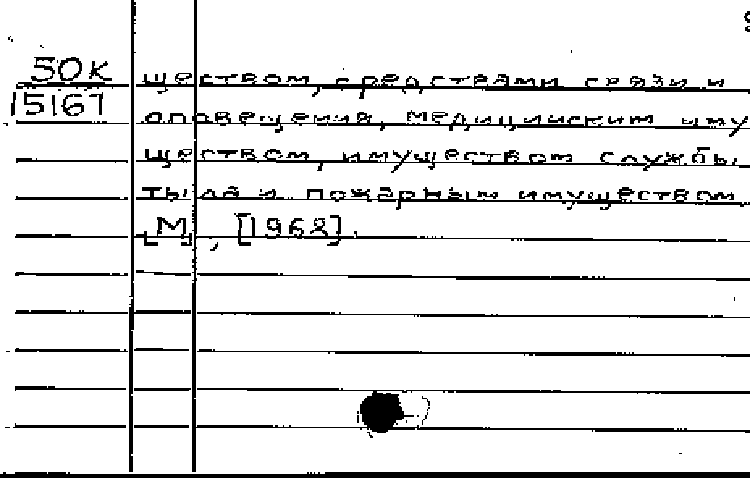 50к
15167
ществом, средствами связи и
оповещения, медицинским иму
ществом, имуществом службы
тыла и пожарным имуществом
[М], [1968].